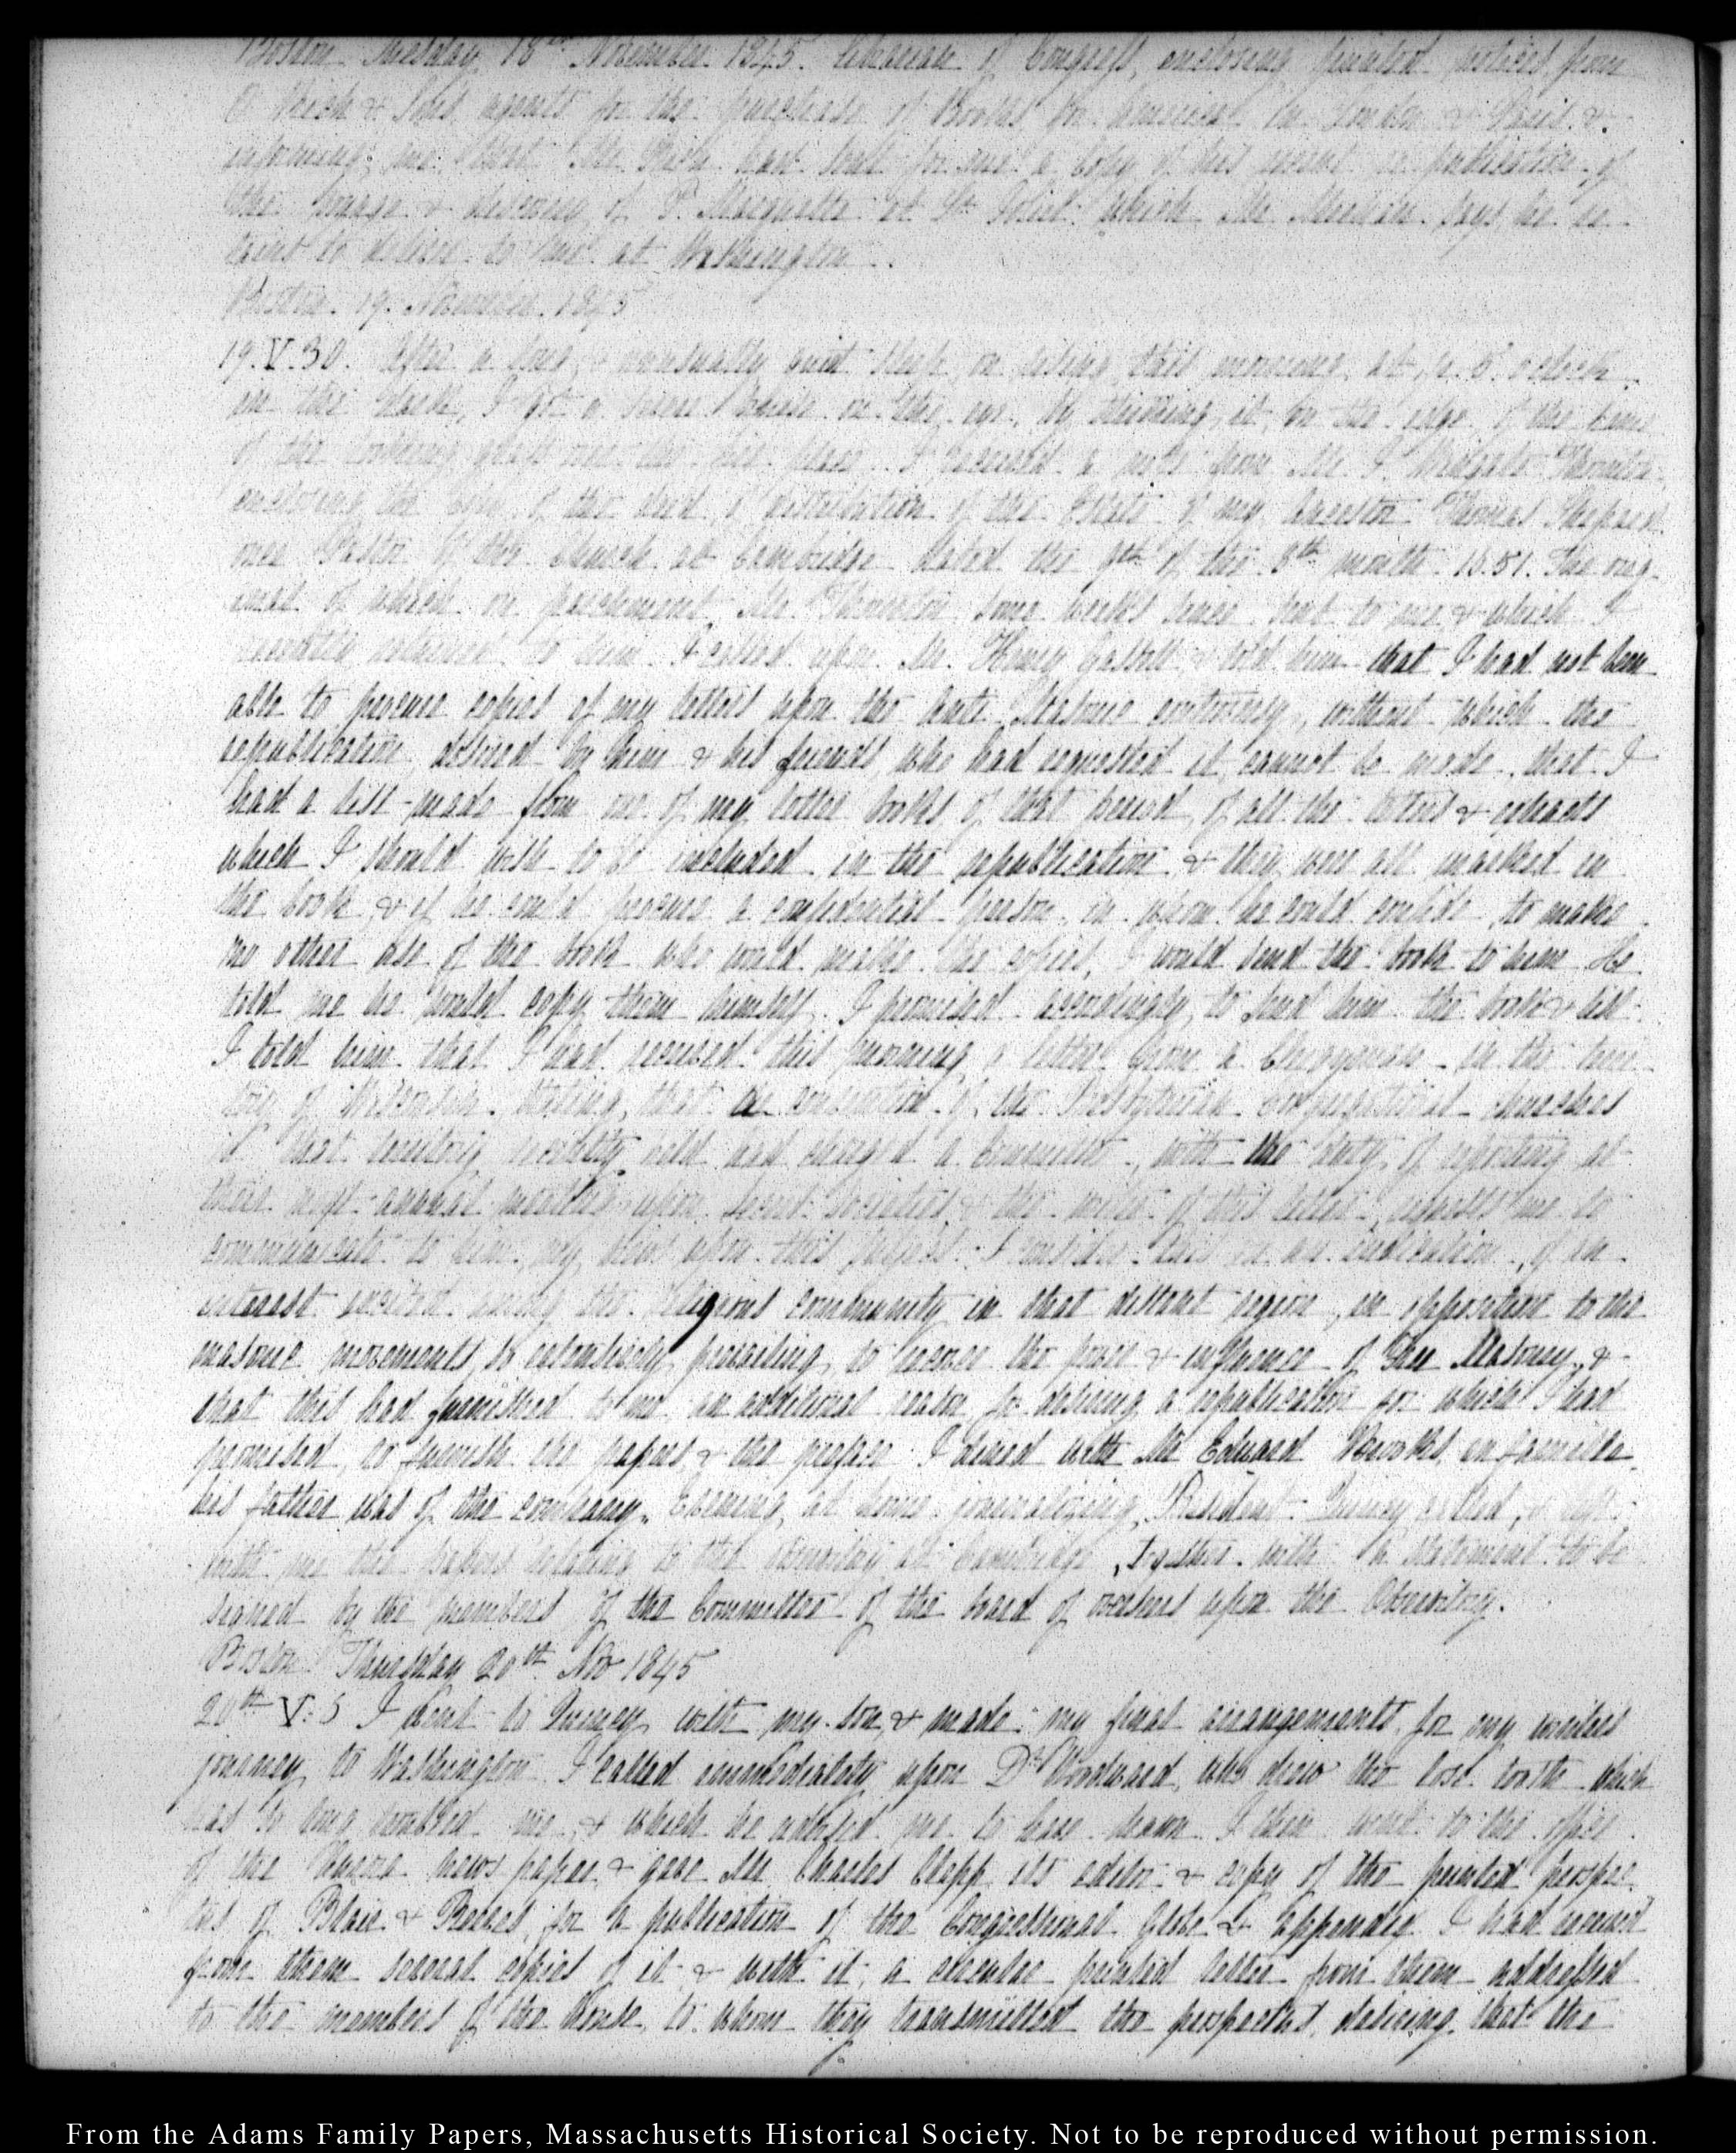 Boston Tuesday 18th November 1845. Librarian of Congress, enclosing printed notices from
O Rich & Sons agents for the purchase of Books for America in London & Paris &
informing me that Mr Rich had sent for me a copy of his recent republication of
the voyage & discovery of P. Marquette & Sr Joliet which Mr Meehan says he
to deliver to me at Washington.
Boston. 19. November. 1845
19. V.30. After a long & unusually quiet sleep, on rising this morning, at 1/2 p. 5. o'clock
in the dark, I got a severe bruise on the eye, by striking it on the edge of the frame
of the looking glass over the fire place. I received a note from Mr J. Wingate Thornton
enclosing the copy of the deed of distribution of the Estate of my Ancestor Thomas Shepard
once Pastor of the Church at Cambridge dated the 9th of the 8th month 1651. The orig-
inal of which on parchment, Mr Thornton some weeks since sent to me & which I
recently returned to him. I called upon Mr. Henry Gassett & told him that I had not been
able to procure copies of my letters upon the Anti Masonic controversy, without which the
republication desired by him & his friends, who had requested it, cannot be made, that I
had a list made from one of my letter books of that period, of all the letters & extracts
which I should wish to be included in the republication & they were all marked in
the book & if he could procure a confidential person in whom he could confide, to make
no other use of the book who would make the copies, I would send the book to him He
told me he would copy them himself. I promised accordingly, to send him the book & list.
I told him that I had received this morning a letter from a Clergyman in the terri-
tory of Wisconsin. Stating, that a convention of the Presbyterian Congregational churches
of that territory recently held had charged a Committee, with the duty of reporting at
their next annual meeting upon Secret Societies, & the writer of this letter, requests me to
communicate to him, my views upon this subject. I consider this as an indication, of an
interest excited among the religious community in that distant region, in opposition to the
masonic movements so extensively prevailing, to recover the power & influence of Free Masonry, &
that this had furnished to me an additional reason for desiring a republication for which I had
promised, to furnish the papers & the preface. I dined with Mr Edward Brooks, en famille
his father was of the company. Evening, at home journalizing, President Quincy called, & left
with me the papers relating to the Observatory at Cambridge, together with a statement to be
signed by the members of the Committee of the board of overseers upon the Observatory.
Boston Thursday 20th Nov 1845
20th V:5 I went to Quincy with my son, & made my final arrangements for my winters
journey to Washington. I called immediately upon Dr Woodward, who drew the lose tooth which
has so long troubled me, & which he advised me to have drawn I then went to the office
of the Quincy news paper & gave Mr Charles Clapp its editor & copy of the printed prospec-
tus of Blair & Reeves for a publication of the Congressional Globe & appendix. I had received
from them several copies of it & with it, a circular printed letter from them addressed
to the members of the House, to whom they transmitted the prospectus, desiring that the
From the Adams Family Papers, Massachusetts Historical Society. Not to be reproduced without permission.